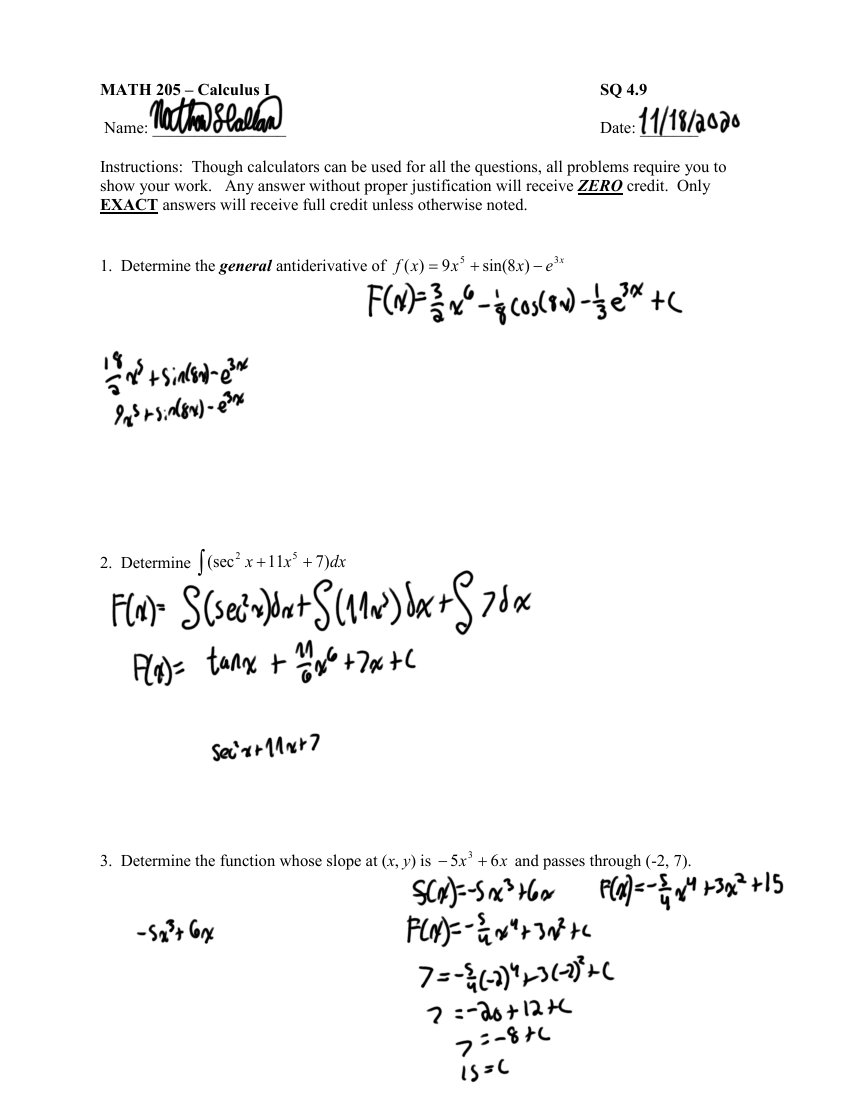 MATH 205 – Calculus I SQ 4.9
Name: Date: 11/18/2020
Instructions: Though calculators can be used for all the questions, all problems require you to
show your work. Any answer without proper justification will receive ZERO credit. Only
EXACT answers will receive full credit unless otherwise noted.
1. Determine the general antiderivative of f(x) = 9x⁵ + sin(8x) − e³ˣ
F(x)=3/2 x⁶ − 1/8 cos(8x) − 1/3 e³ˣ + C
18/2 x⁵ + sin(8x) − e³ˣ
9x⁵ + sin(8x) − e³ˣ
2. Determine ∫(sec² x + 11x⁵ + 7)dx
F(x)= ∫(sec²x)dx + ∫(11x⁵)dx + ∫7dx
F(x)= tanx + 11/6 x⁶ + 7x + C
sec²x + 11x + 7
3. Determine the function whose slope at (x, y) is −5x³ + 6x and passes through (-2, 7).
S(x)=−5x³+6x F(x)=−5/4 x⁴ + 3x² + 15
−5x³ + 6x F(x)=−5/4 x⁴ + 3x² + C
7=−5/4(−2)⁴ + 3(−2)² + C
7 = −20 + 12 + C
7 = −8 + C
15 = C